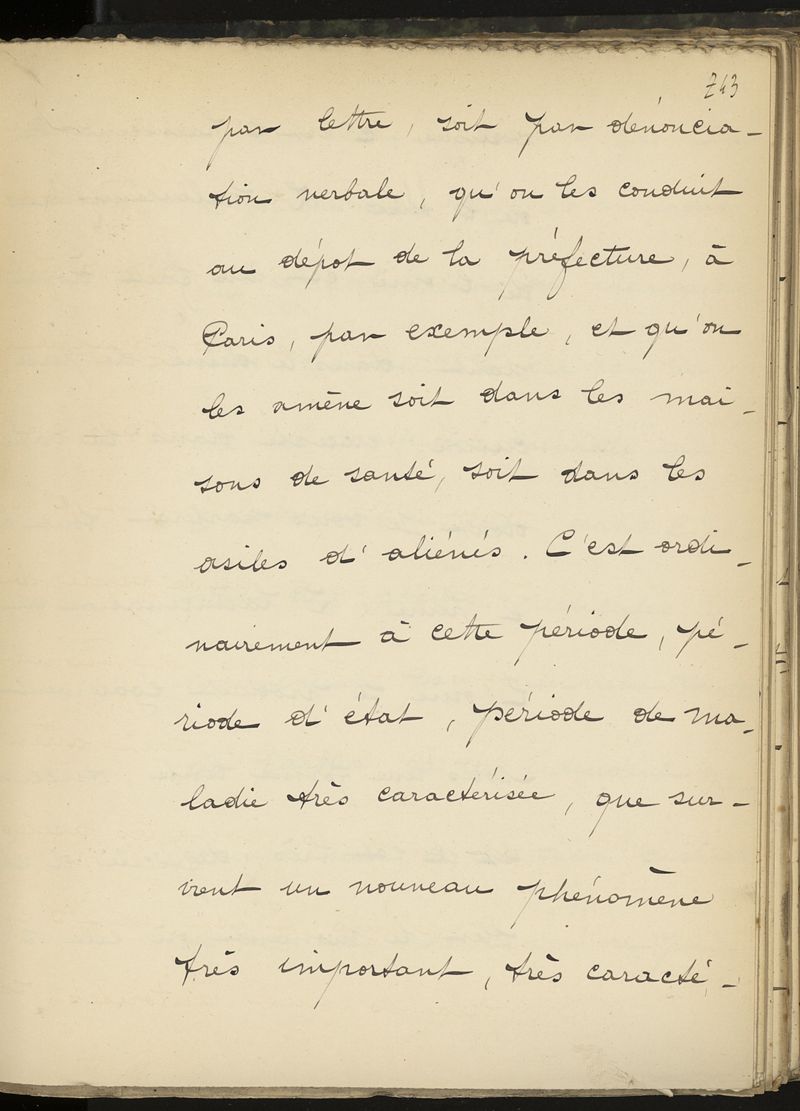 743
par lettre, soit par dénoncia-
tion verbale, qu'on les conduit
au dépot de la préfecture, à
Paris, par exemple, et qu'on
les amène soit dans les mai-
sons de santé, soit dans les
asiles d'aliénés. C'est ordi-
nairement à cette période, pé-
riode d'état, période de ma-
ladie très caractérisée, que sur-
vient un nouveau phénomène
très important, très caracté-